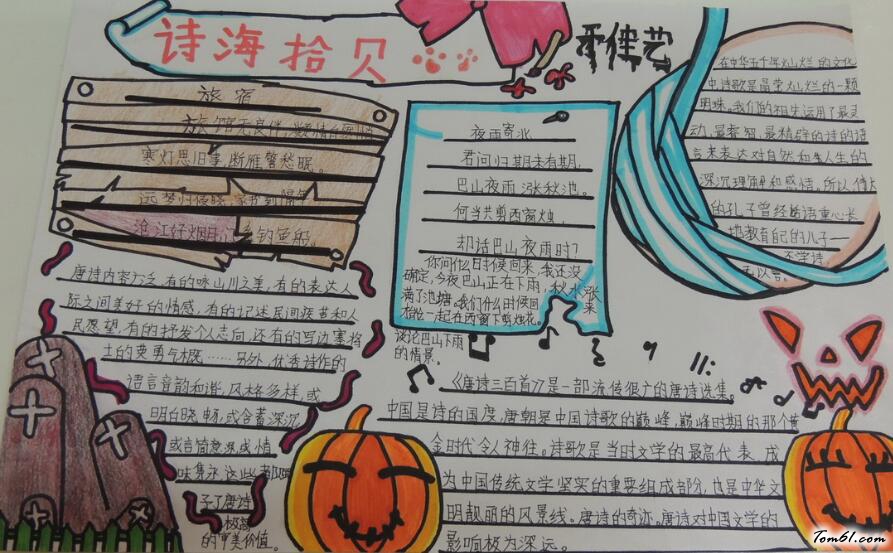 诗海拾贝
旅宿
旅馆无良伴,凝情自悄然
寒灯思旧事,断雁警愁眠。
远梦归侵晓,家书到隔年
沧江好烟月,门系钓鱼船。
唐诗内容广泛,有的咏山川之美,有的表达人
际之间美好的情感,有的记述民间疾苦和人
民愿望,有的抒发个人志向,还有的写边塞将
士的英勇气概……另外,优秀诗作的
语言音韵和谐,风格多样,或
明白晓畅,或含蓄深沉
或言简意深,或情
味隽永
了唐诗
极高
的审美价值。
夜雨寄北
君问归期未有期,
巴山夜雨涨秋池。
何当共剪西窗烛,
却话巴山夜雨时?
你问什么时候回来,我还没
确定,今夜巴山正在下雨,秋水涨
满了池塘。我们什么时候回来
才能一起在西窗下剪烛花。
谈论巴山下雨
的情景。
在中华五千年灿烂的文化
中,诗歌是晶莹灿烂的一颗
明珠。我们的祖先运用了最灵
动,最睿智,最精辟的诗的语
言来表达对自然和生人生的
深沉理解和感情,所以伟大
的孔子曾经语重心长
地教育自己的儿子——
不学诗
无以言。
《唐诗三百首》是一部流传很广的唐诗选集。
中国是诗的国度,唐朝是中国诗歌的巅峰,巅峰时期的那个黄
金时代令人神往。诗歌是当时文学的最高代表,成
为中国传统文学坚实的重要组成部分,也是中华文
明靓丽的风景线。唐诗的奇迹。唐诗对中国文学的
影响极为深远。
Tom61.com